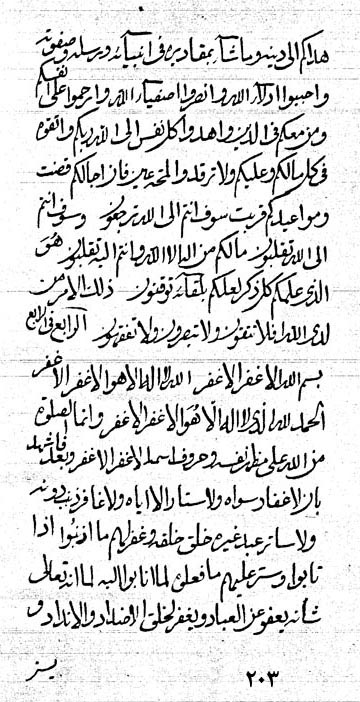 هداكم الى دينه وما شاء بمقاديره فى انبيائه ورسله وصفوته
واحبوا اولياء الله وانصروا اصفياء الله وارحموا على انفسكم
ومن معكم فى الدين واهدوا كل نفس الى الله ربكم واتقوه
فى كل مالكم وعليكم ولا ترقدوا لمحة عين فان اجالكم قضت
ومواعيدكم قربت سوف انتم الى الله ترجعون وسوف انتم
الى الله تقلبون مالكم من اله الا الله وانتم اليه تقلبون هو
الذى عليكم كل ذكر لعلكم بلقائه توقنون ذلك الامر من
لدى الله افلا تتقون ولا تبصرون ولا تفقهون الرابع فى الرابع
بسم الله الاغفر الاغفر الله لا اله الا هو الاغفر الاغفر
الحمد لله الذى لا اله الا هو الاغفر الاغفر وانما الصلوة
من الله على مظهر نفسه وحروف اسماء الاغفر الاغفر وبعد فاشهد
بان لا غفار سواه ولا ستار الا اياه ولا غافر ذنب دونه
ولا ساتر عبد غيره خلق خلقه وغفر لهم ما اذنبوا اذا
تابوا وستر عليهم ما فعلوا لما انابوا اليه لما انه تعالى
شأنه يعفو عن العباد ويغفر لخلق الاضداد والانداد و
يستر
٢٠٣